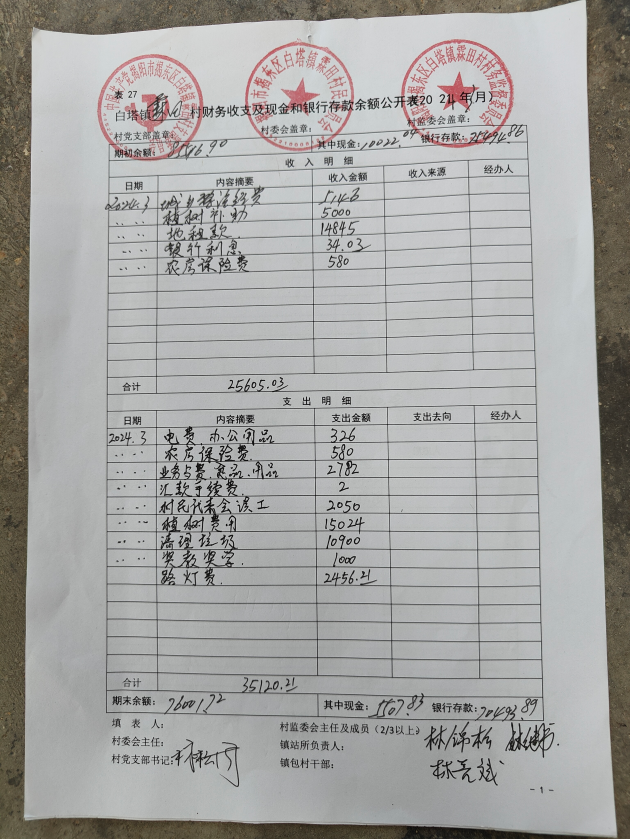 表 27
白塔镇 村财务收支及现金和银行存款余额公开表2024年 月)
村党支部盖章: 村委会盖章: 村监委会盖章:
期初余额: 85516.90 其中现金: 10022.04 银行存款: 75494.86
收 入 明 细
日期 内容摘要 收入金额 收入来源 经办人
2024.3 城乡 经费 5146
〃 〃 植树补助 5000
〃 〃 地租款 14845
〃 〃 银行利息 34.03
〃 〃 农房保险费 580
合计 25605.03
支 出 明 细
日期 内容摘要 支出金额 支出去向 经办人
2024.3 电费、办公用品 326
〃 〃 农房保险费 580
〃 〃 业务 费、 品、用品 2782
〃 〃 汇款手续费 2
〃 〃 村民代表会误工 2050
〃 〃 植树费用 15024
〃 〃 清理垃圾 10900
〃 〃 奖教奖学 1000
路灯费 2456.21
合计 35120.21
期末余额: 76001.72 其中现金: 5507.83 银行存款: 70493.89
填 表 人:
村委会主任: 村监委会主任及成员(2/3以上) 林锦松
村党支部书记: 镇站所负责人:
镇包村干部: 林亮斌
-1-